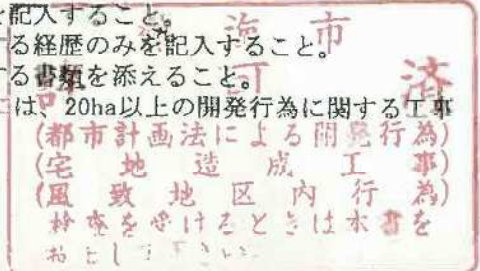 を記入すること。
る経歴のみを記入すること。
する書類を添えること。
は、20ha以上の開発行為に関する工事
海市
許可済
(都市計画法による開発行為)
(宅地造成工事)
(風致地区内行為)
検査を受けるときは本書を